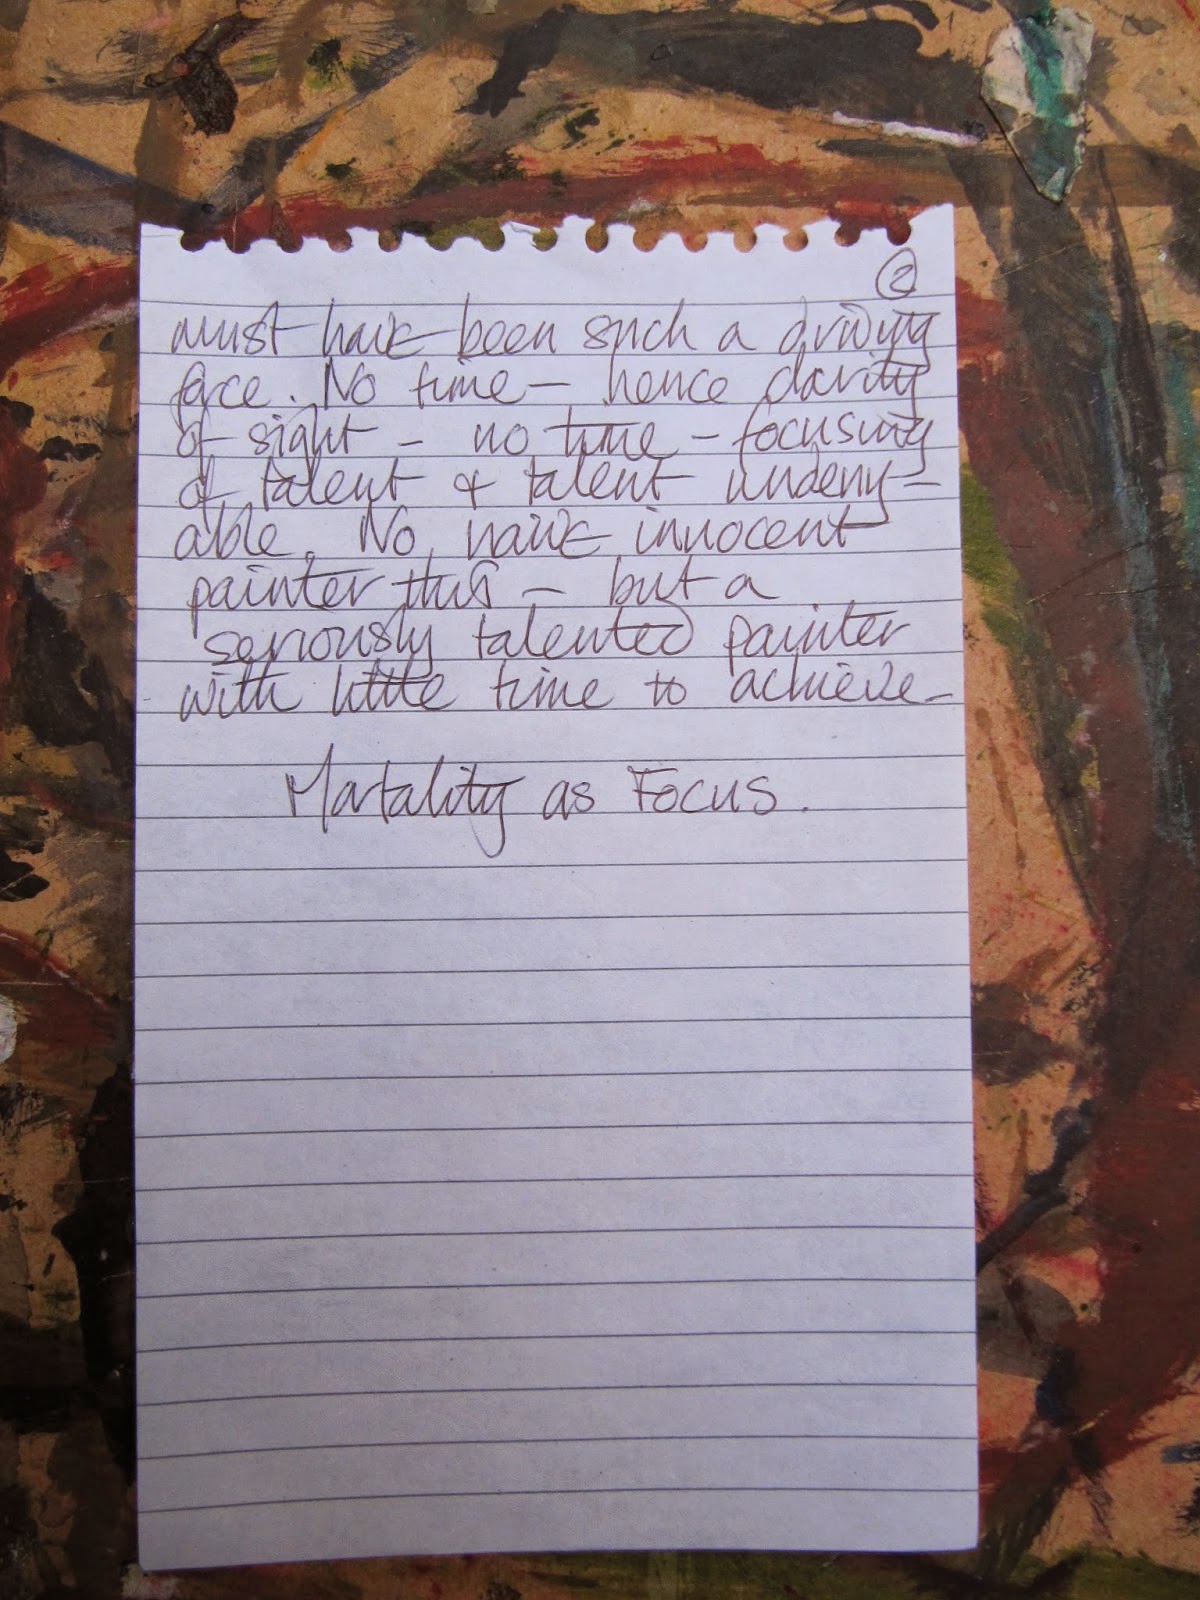 ②
must have been such a driving
force. No time — hence clarity
of sight — no time — focusing
of talent & talent undeny—
able. No naive innocent
painter this — but a
seriously talented painter
with little time to achieve—
Mortality as Focus.